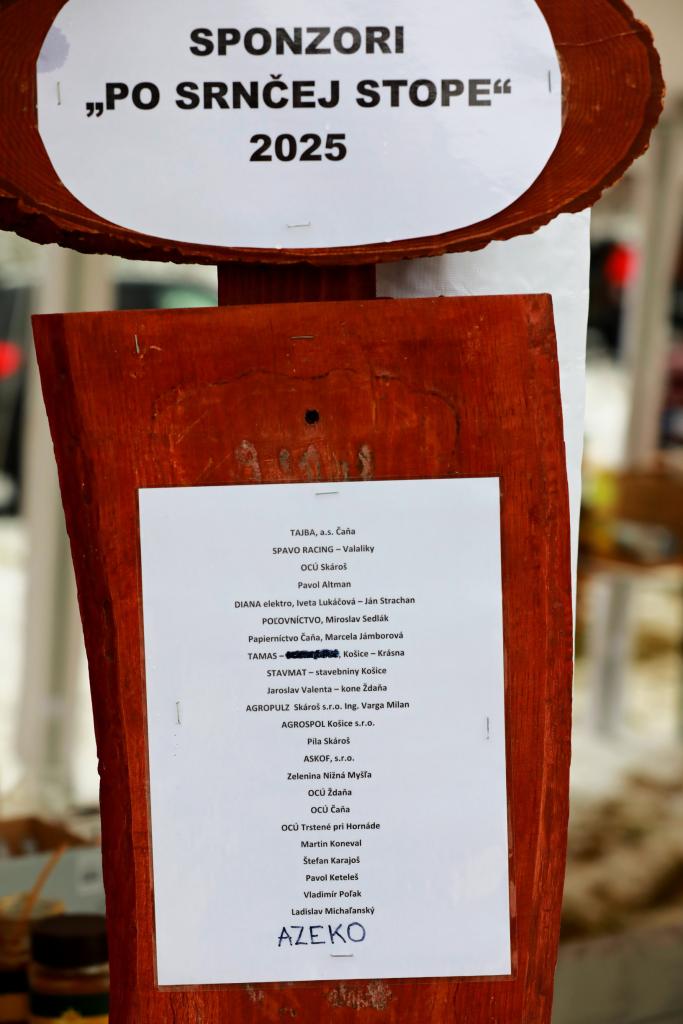 SPONZORI
„PO SRNČEJ STOPE“
2025
TAJBA, a.s. Čaňa
SPAVO RACING – Valaliky
OCÚ Skároš
Pavol Altman
DIANA elektro, Iveta Lukáčová – Ján Strachan
POĽOVNÍCTVO, Miroslav Sedlák
Papierníctvo Čaňa, Marcela Jámborová
TAMAS – , Košice – Krásna
STAVMAT – stavebniny Košice
Jaroslav Valenta – kone Ždaňa
AGROPULZ Skároš s.r.o. Ing. Varga Milan
AGROSPOL Košice s.r.o.
Píla Skároš
ASKOF, s.r.o.
Zelenina Nižná Myšľa
OCÚ Ždaňa
OCÚ Čaňa
OCÚ Trstené pri Hornáde
Martin Koneval
Štefan Karajoš
Pavol Keteleš
Vladimír Poľak
Ladislav Michaľanský
AZEKO